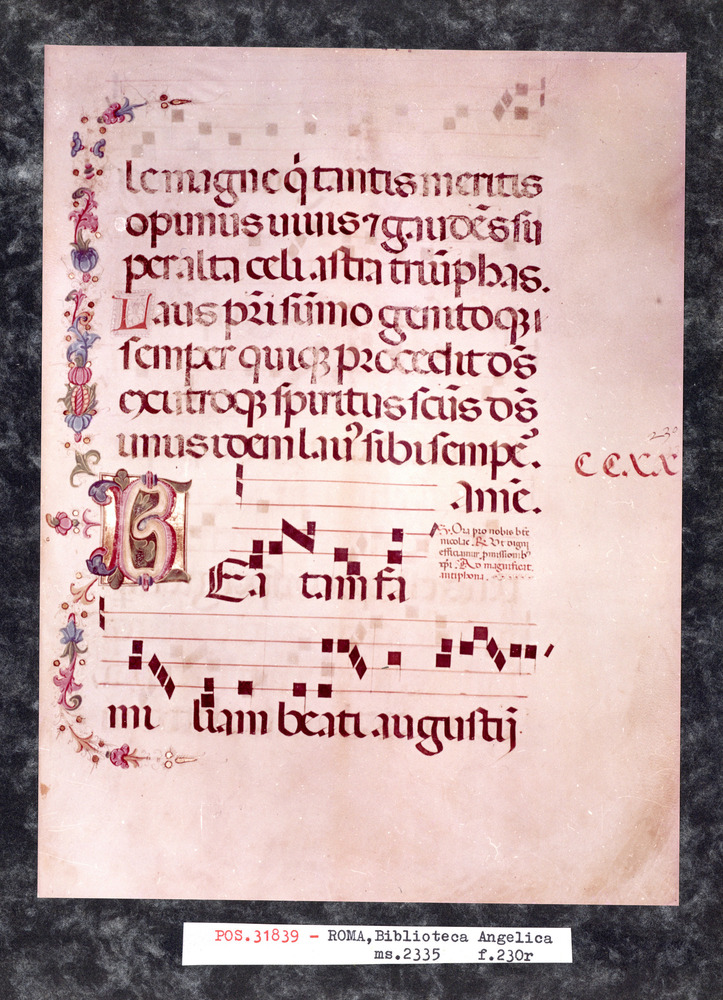 le magne q̃ tantis meritis
opimus uiuis ⁊ gaudẽs su
per alta celi astra triũphas.
Laus pr̃i sũmo genitoqꝫ
semper quiqꝫ procedit ds̃
ex utroqꝫ spiritus scũs ds̃
unus idem laus sibi sempe᷑.
Amẽ.
230
CC.XX
℣. Ora pro nobis bẽ
nicolae. ℞. Vt digni
efficiamur. pmissionibꝰ
xp̃i. Ad magnificat.
antiphona.
BEa tam fa
mi liam beati augustij
POS.31839 - ROMA,Biblioteca Angelica
ms.2335 f.230r